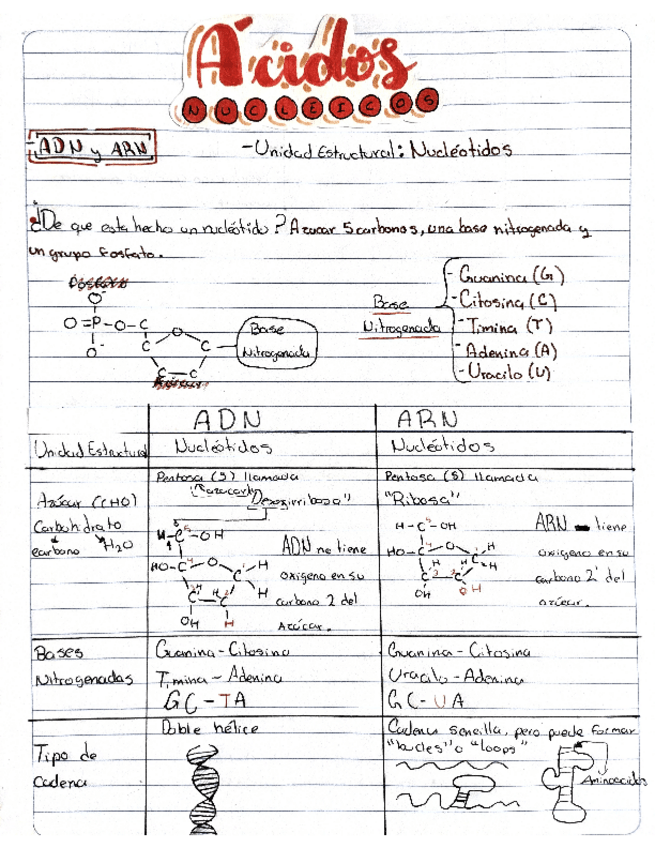 Ácidos
NUCLEICOS
-ADN y ARN
-Unidad Estructural: Nucleótidos
¿De que esta hecho un nucleótido? Azucar 5 carbonos, una base nitrogenada y
un grupo fosfato.
O⁻
O=P-O-C
O⁻
C O C
C-C
Base
Nitrogenada
Base
Nitrogenada
-Guanina (G)
-Citosina (C)
-Timina (T)
-Adenina (A)
-Uracilo (U)
ADN ARN
Unidad Estructural Nucleótidos Nucleótidos
Azúcar (CHO)
Carbohidrato
carbono H₂O
Pentosa (5) llamada
"Desoxirribosa"
H-C-OH
HO-C O C H
H
C-C
OH H
ADN no tiene
oxigeno en su
carbono 2 del
Azúcar.
Pentosa (5) llamada
"Ribosa"
H-C-OH
HO-C O C H
H
C-C
OH OH
ARN tiene
oxigeno en su
carbono 2' del
azúcar.
Bases
Nitrogenadas
Guanina-Citosina
Timina-Adenina
GC-TA
Guanina-Citosina
Uracilo-Adenina
GC-UA
Tipo de
Cadena
Doble hélice
Cadena sencilla, pero puede formar
"bucles" o "loops"
Aminoacidos